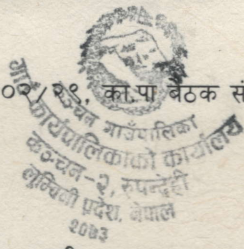 ०२/२९, का.पा बैठक सं
कञ्चन गाउँपालिका
गाउँ कार्यपालिकाको कार्यालय
कञ्चन-२, रुपन्देही
लुम्बिनी प्रदेश, नेपाल
२०७३